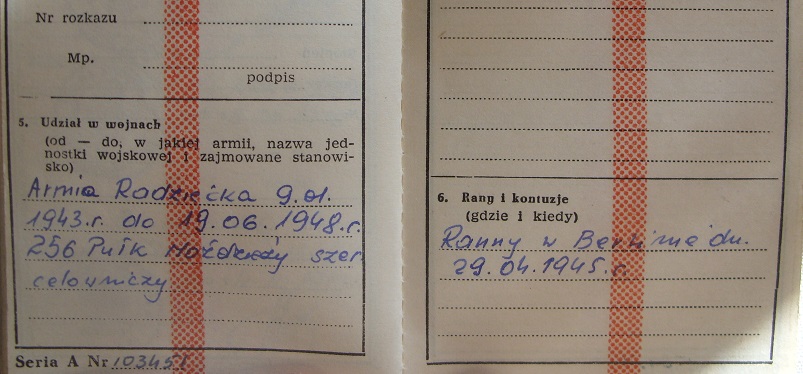 Nr rozkazu
Mp.
podpis
5. Udział w wojnach
(od — do, w jakiej armii, nazwa jed-
nostki wojskowej i zajmowane stanowi-
sko)
Armia Radziecka g. od.
1943.r. do 19.06.1948.r.
256 Pułk Moździeży szer.
celowniczy
Seria A Nr 103451
6. Rany i kontuzje
(gdzie i kiedy)
Ranny w Berlinie dn.
29.04.1945.r.